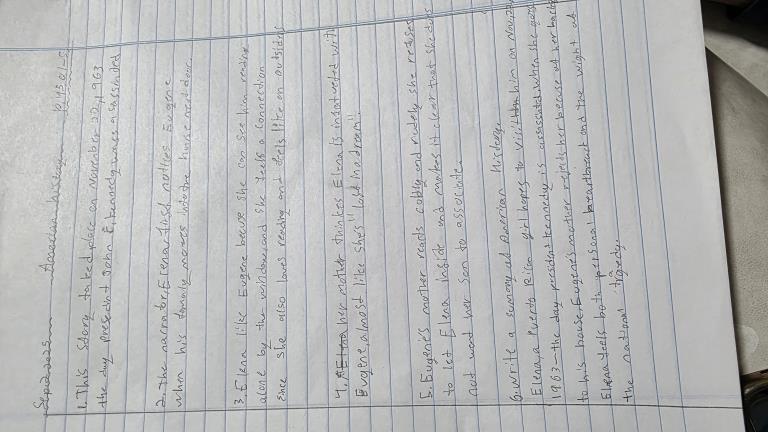 Sep 2 2025 American history
1. This Story taked place on November 22, 1963
the day presednt John F. kennedy was assassinated
2. The narrator, Elena, first notices Eugene
when his family moves into the house next door.
3. Elena like Eugene becuse she can see him reading
alone by the window and she feels a connection
since she also loves reading and feels like an outsider
4. Elena her mother thinkes Elena is infatuated with
Eugene, almost like she's "lost in a dream".
5. Eugene's mother reacts coldly and rudely she refuses
to let Elena inside and makes it clear that she does
not want her son to associate.
6. write a summary of American History.
Elena, a Puerto Rican girl hopes to visit him on Nov 22
1963-the day president kennedy is assassinated when she goes
to his house, Eugene's mother rejects her because of her backg
Elena feels both personal heartbreact and the wight of
the national tragedy.